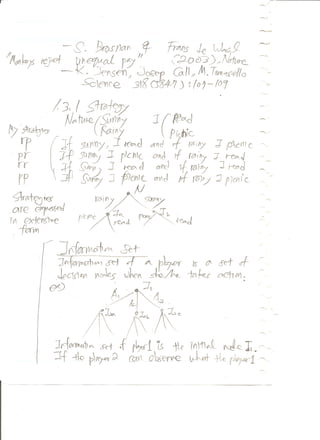 - S. Brosnan & Frans de Waal
"Monkeys reject unequal pay" (2003) Nature
- K. Jensen, Josep Call, M. Tomasello
Science 318 (5847) : 107-109
1.3.1 Strategy
Nature Sunny I Read
Rainy Picnic
My strategies
rp If sunny, I read and if rainy I picnic
pr If sunny I picnic and if rainy I read
rr If sunny, I read and if rainy I read
pp If sunny I picnic and if rainy I picnic
Strategies are expressed in extensive form
N
rainy sunny
picnic I1 read picnic I2 read
Information Set
Information set of a player is a set of
decision nodes when she/he takes action.
ex) I1
A1 A2
Information set of player1 is the initial node I1.
If the player 2 can observe what the player1